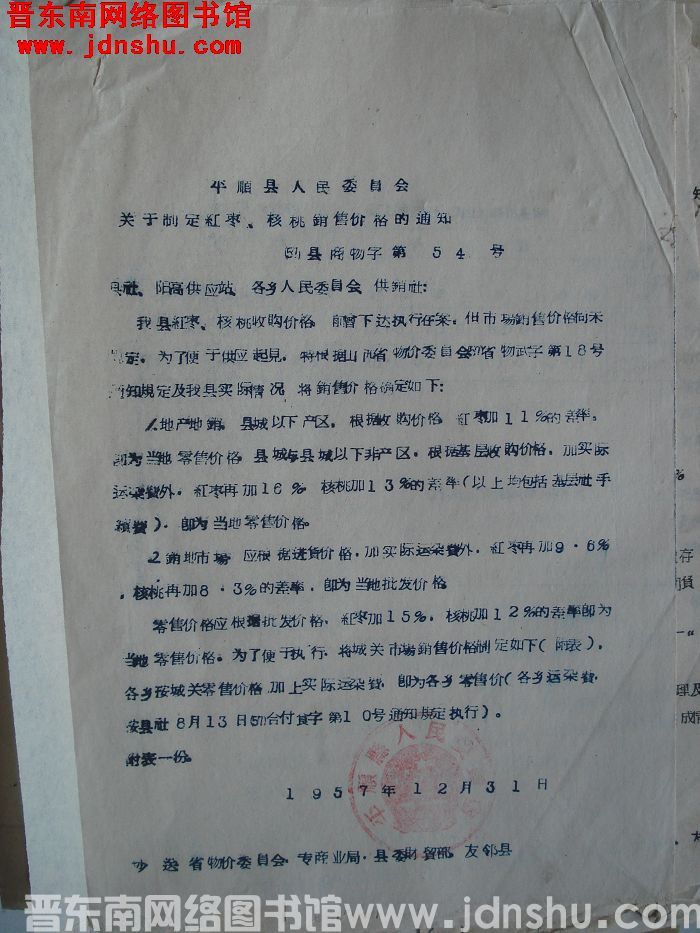 晋东南网络图书馆
www.jdnshu.com
平順县人民委員会
关于制定紅枣、核桃銷售价格的通知
县商物字第54号
县社、阳高供应站、各乡人民委員会、供銷社:
我县紅枣、核桃收购价格,前曾下达执行在案,但市場銷售价格尚未
定。为了便于供应起見,特根据山西省物价委員会省物武字第18号
通知規定及我县实际情况,将銷售价格确定如下:
1.地产地銷,县城以下产区,根据收购价格,紅枣加11%的差率,
即为当地零售价格,县城与县城以下非产区,根据基层收购价格,加实际
运杂費外,紅枣再加16%,核桃加13%的差率(以上均包括基层社手
續費),即为当地零售价格。
2.銷地市場,应根据进貨价格,加实际运杂費外,紅枣再加9·6%
,核桃再加8·3%的差率,即为当地批发价格。
零售价格应根据批发价格,紅枣加15%,核桃加12%的差率即为
当地零售价格。为了便于执行,将城关市場銷售价格制定如下(附表),
各乡按城关零售价格加上实际运杂費,即为各乡零售价(各乡运杂費,
按县社8月13日食字第10号通知規定执行)。
附表一份。
1957年12月31日
抄送省物价委員会、专商业局、县委財貿部、友邻县
平順县人民
晋东南网络图书馆 www.jdnshu.com